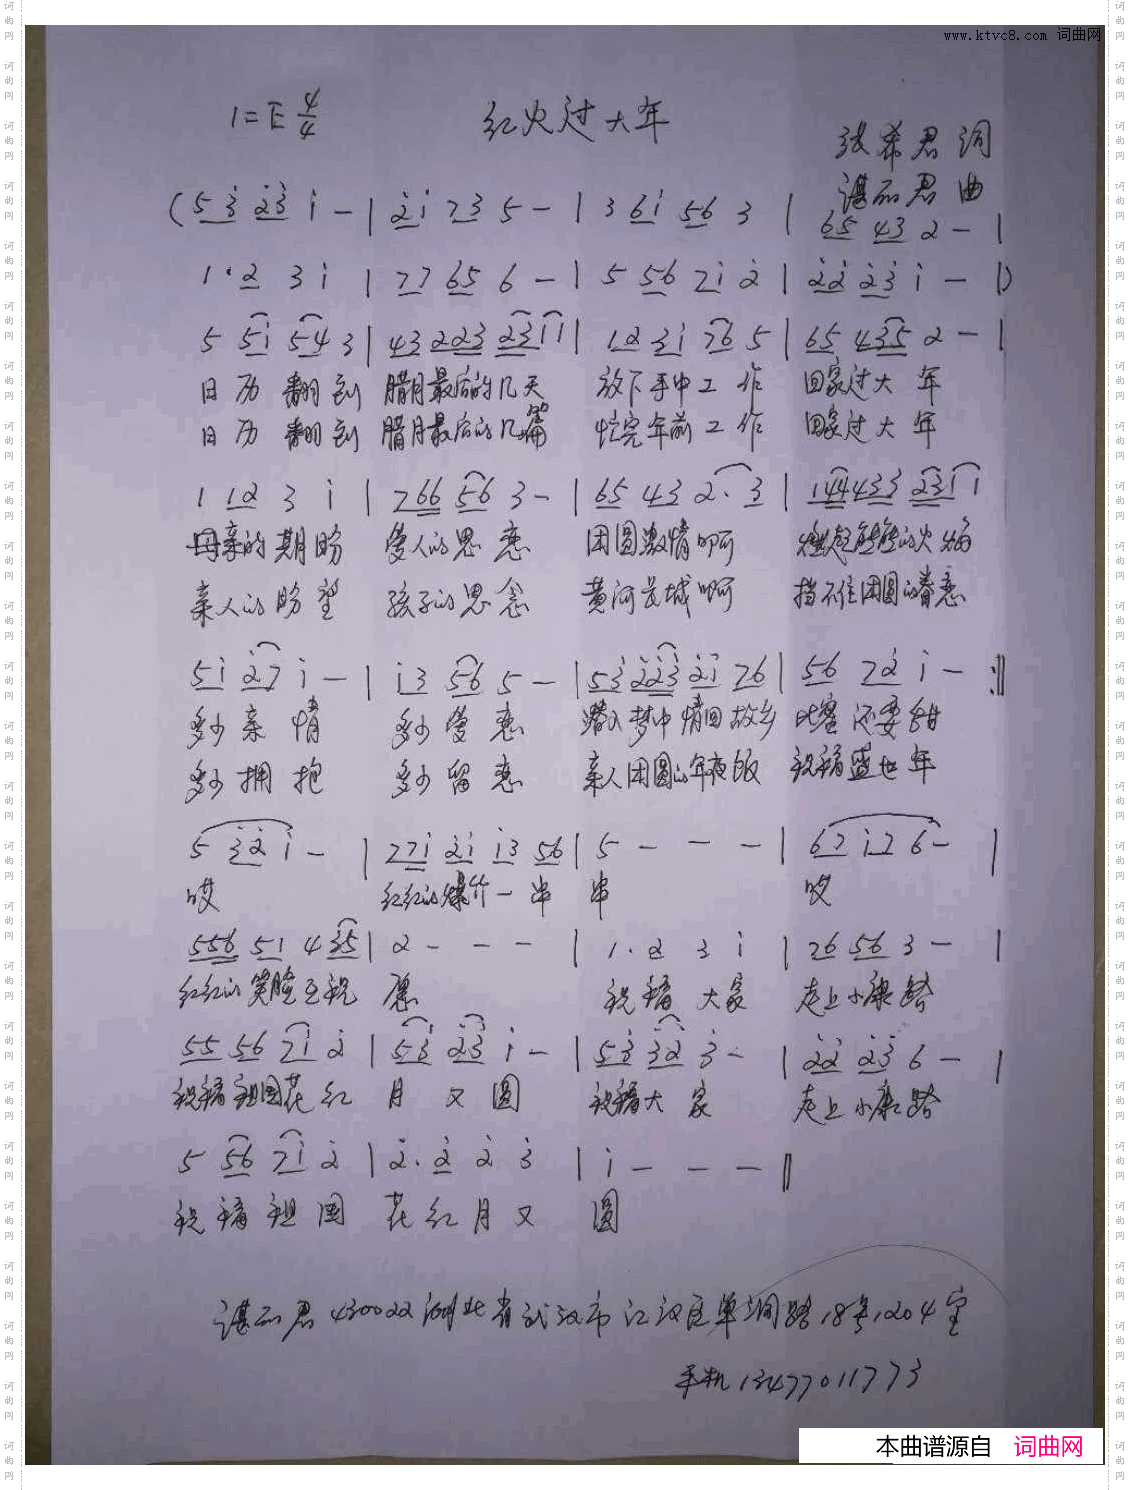 www.ktvc8.com 词曲网
1=E 4/4 红火过大年
张希君 词
谌丽君 曲
(5 3 2 3 1 - | 2 1 7 3 5 - | 3 6 1 5 6 3 | 6 5 4 3 2 - |
1 · 2 3 1 | 7 7 6 5 6 - | 5 5 6 7 1 2 | 2 2 2 3 1 - |)
5 5 1 5 4 3 | 4 3 2 2 3 2 3 1 1 | 1 2 3 1 7 6 5 | 6 5 4 3 5 2 - |
日历翻到 腊月最后的几天 放下手中工作 回家过大年
日历翻到 腊月最后的几篇 忙完年前工作 回家过大年
1 1 2 3 1 | 7 6 6 5 6 3 - | 6 5 4 3 2 · 3 | 1 4 4 4 3 3 2 3 1 1
母亲的期盼 爱人的思恋 团圆激情啊 燃起熊熊的火焰
亲人的盼望 孩子的思念 黄河长城啊 挡不住团圆的眷恋
5 1 2 7 1 - | 1 3 5 6 5 - | 5 3 2 2 3 2 1 7 6 | 5 6 7 2 1 - :||
多少亲情 多少爱恋 潜入梦中情回故乡 比蜜还要甜
多少拥抱 多少留恋 亲人团圆的年夜饭 祝福盛世年
5 3 2 1 - | 7 7 1 2 1 1 3 5 6 | 5 - - - | 6 7 1 7 6 - |
哎 红红的爆竹一串 串 哎
5 5 6 5 1 4 3 5 | 2 - - - | 1 · 2 3 1 | 7 6 5 6 3 - |
红红的笑脸互祝 愿 祝福大家 走上小康路
5 5 5 6 7 1 2 | 5 3 2 3 1 - | 5 3 3 2 3 - | 2 2 2 3 6 - |
祝福祖国花红 月又圆 祝福大家 走上小康路
5 5 6 7 1 2 | 2 · 2 2 3 | 1 - - - ||
祝福祖国 花红月又 圆
谌丽君 430022 湖北省武汉市江汉区单洞路18号1204室
手机 13477011773
本曲谱源自 词曲网